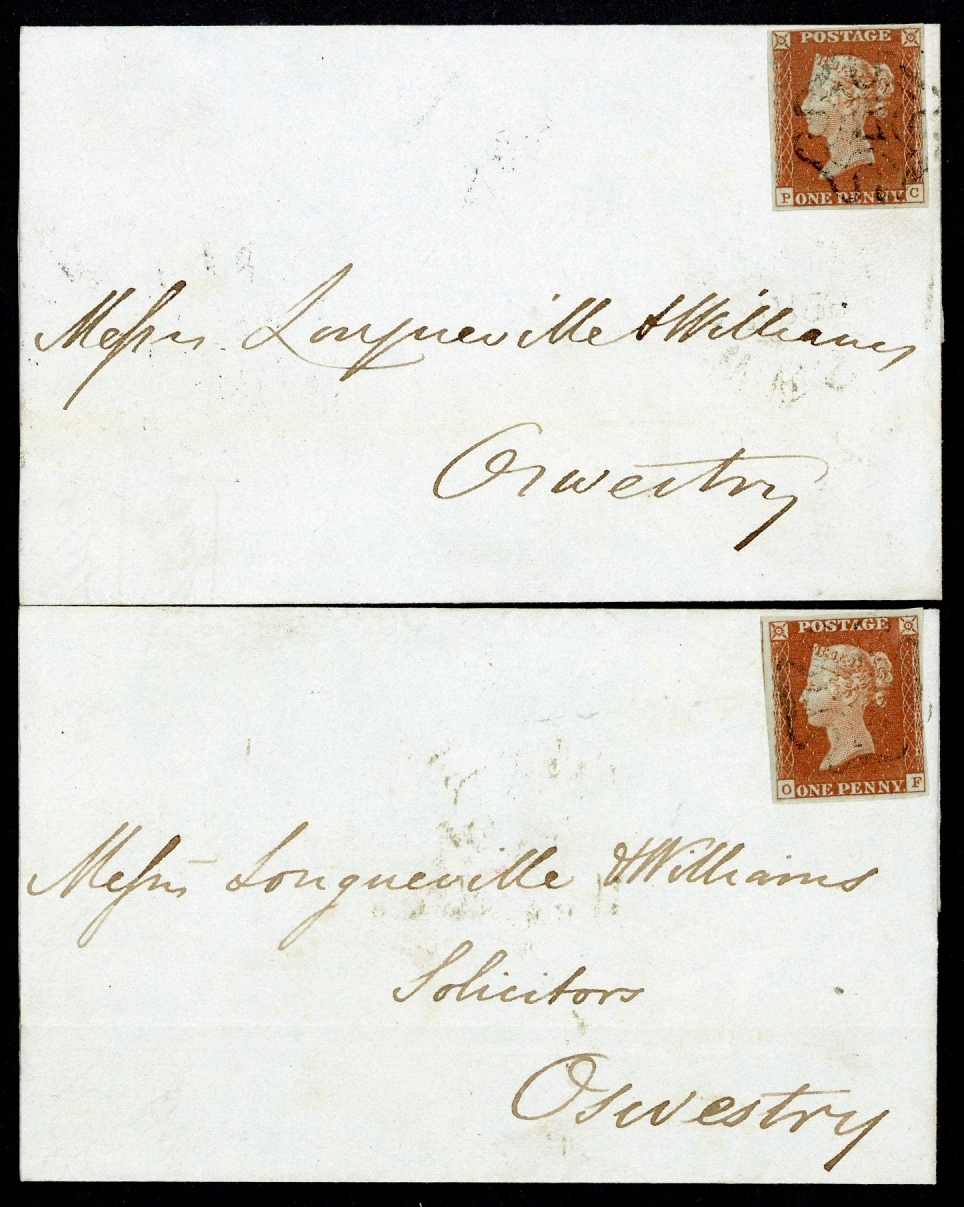 POSTAGE
P ONE PENNY C
Messrs Longueville & Williams
Oswestry
POSTAGE
O ONE PENNY F
Messrs Longueville & Williams
Solicitors
Oswestry